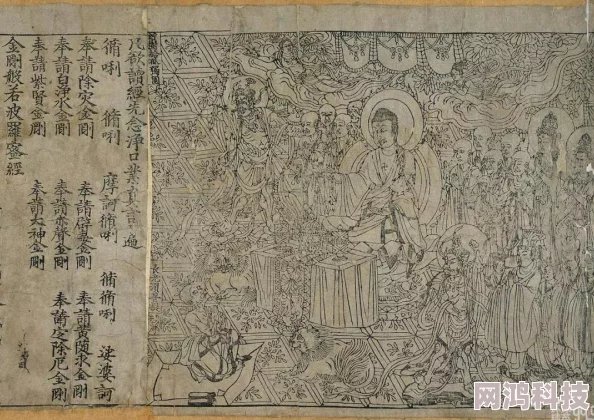 凡欲讀經先念淨口業真言一遍
脩唎 脩唎 摩訶脩唎 脩脩唎 娑婆訶
奉請除灾金剛 奉請辟毒金剛 奉請黃隨求金剛
奉請白淨水金剛 奉請赤聲金剛 奉請定除厄金剛
奉請紫賢金剛 奉請大神金剛
金剛般若波羅蜜經
网鸿科技